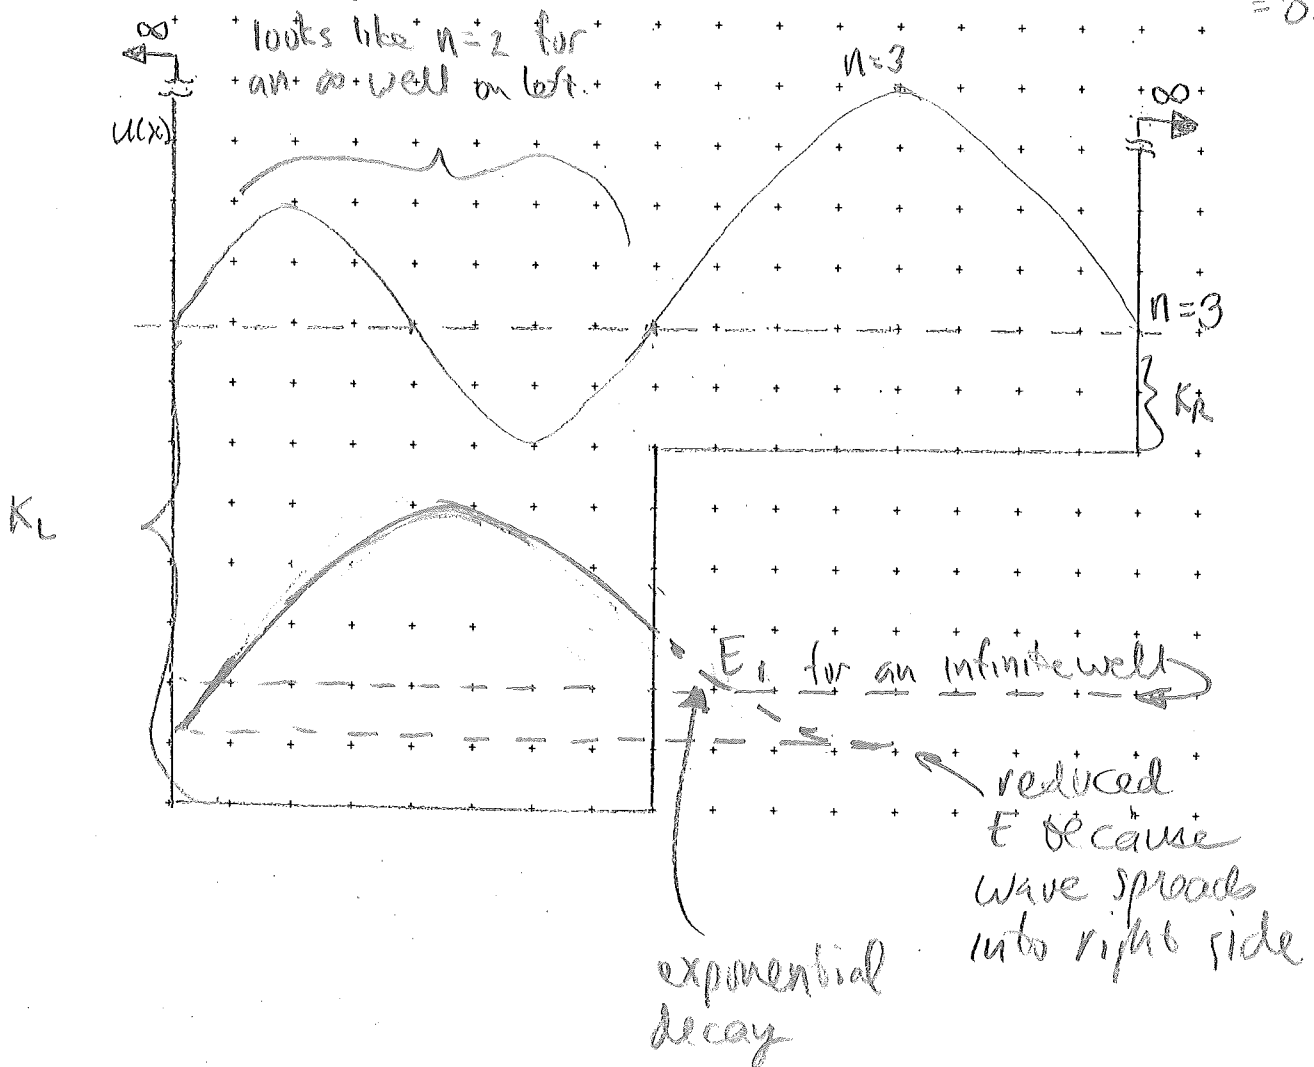 = 8.
∞
looks like n=2 for
an ∞ well on left.
n=3
∞
U(x)
n=3
K_R
K_L
E₁ for an infinite well
reduced
E because
wave spreads
into right side
exponential
decay